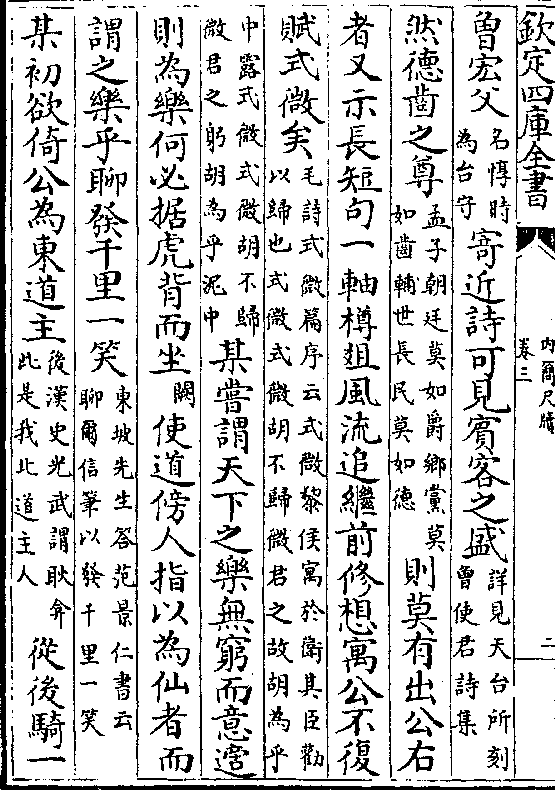 欽定四庫全書
內簡尺牘
卷三
二
曾宏父名惇時為台守寄近詩可見賓客之盛詳見天台所刻曾使君詩集
然德齒之尊孟子朝廷莫如爵鄉黨莫如齒輔世長民莫如德則莫有出公右
者又示長短句一軸樽俎風流追繼前修想寓公不復
賦式微矣毛詩式微篇序云式微黎侯寓於衛其臣勸以歸也式微式微胡不歸微君之故胡為乎
中露式微式微胡不歸微君之躬胡為乎泥中某嘗謂天下之樂無窮而意適
則為樂何必据虎背而坐闕使道傍人指以為仙者而
謂之樂乎聊發千里一笑東坡先生答范景仁書云聊爾信筆以發千里一笑
某初欲倚公為東道主後漢史光武謂耿弇此是我北道主人從後騎一